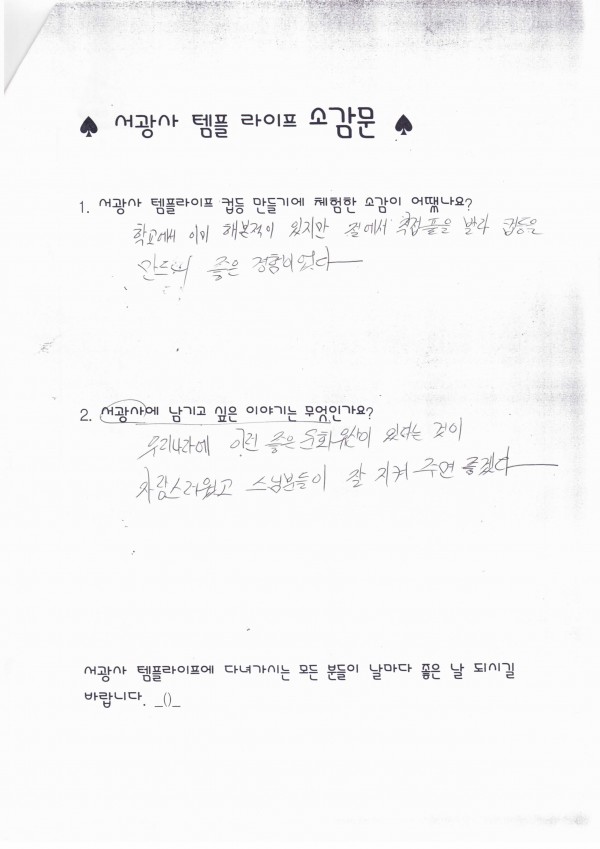 ♠ 서광사 템플 라이프 소감문 ♠
1. 서광사 템플라이프 컵등 만들기에 체험한 소감이 어땠나요?
학교에서 이미 해본적이 있지만 절에서 직접 풀을 발라 컵등을
만드니 좋은 경험이었다
2. 서광사에 남기고 싶은 이야기는 무엇인가요?
우리나라에 이런 좋은 문화유산이 있다는 것이
자랑스러웠고 스님분들이 잘 지켜 주면 좋겠다
서광사 템플라이프에 다녀가시는 모든 분들이 날마다 좋은 날 되시길
바랍니다. _()_